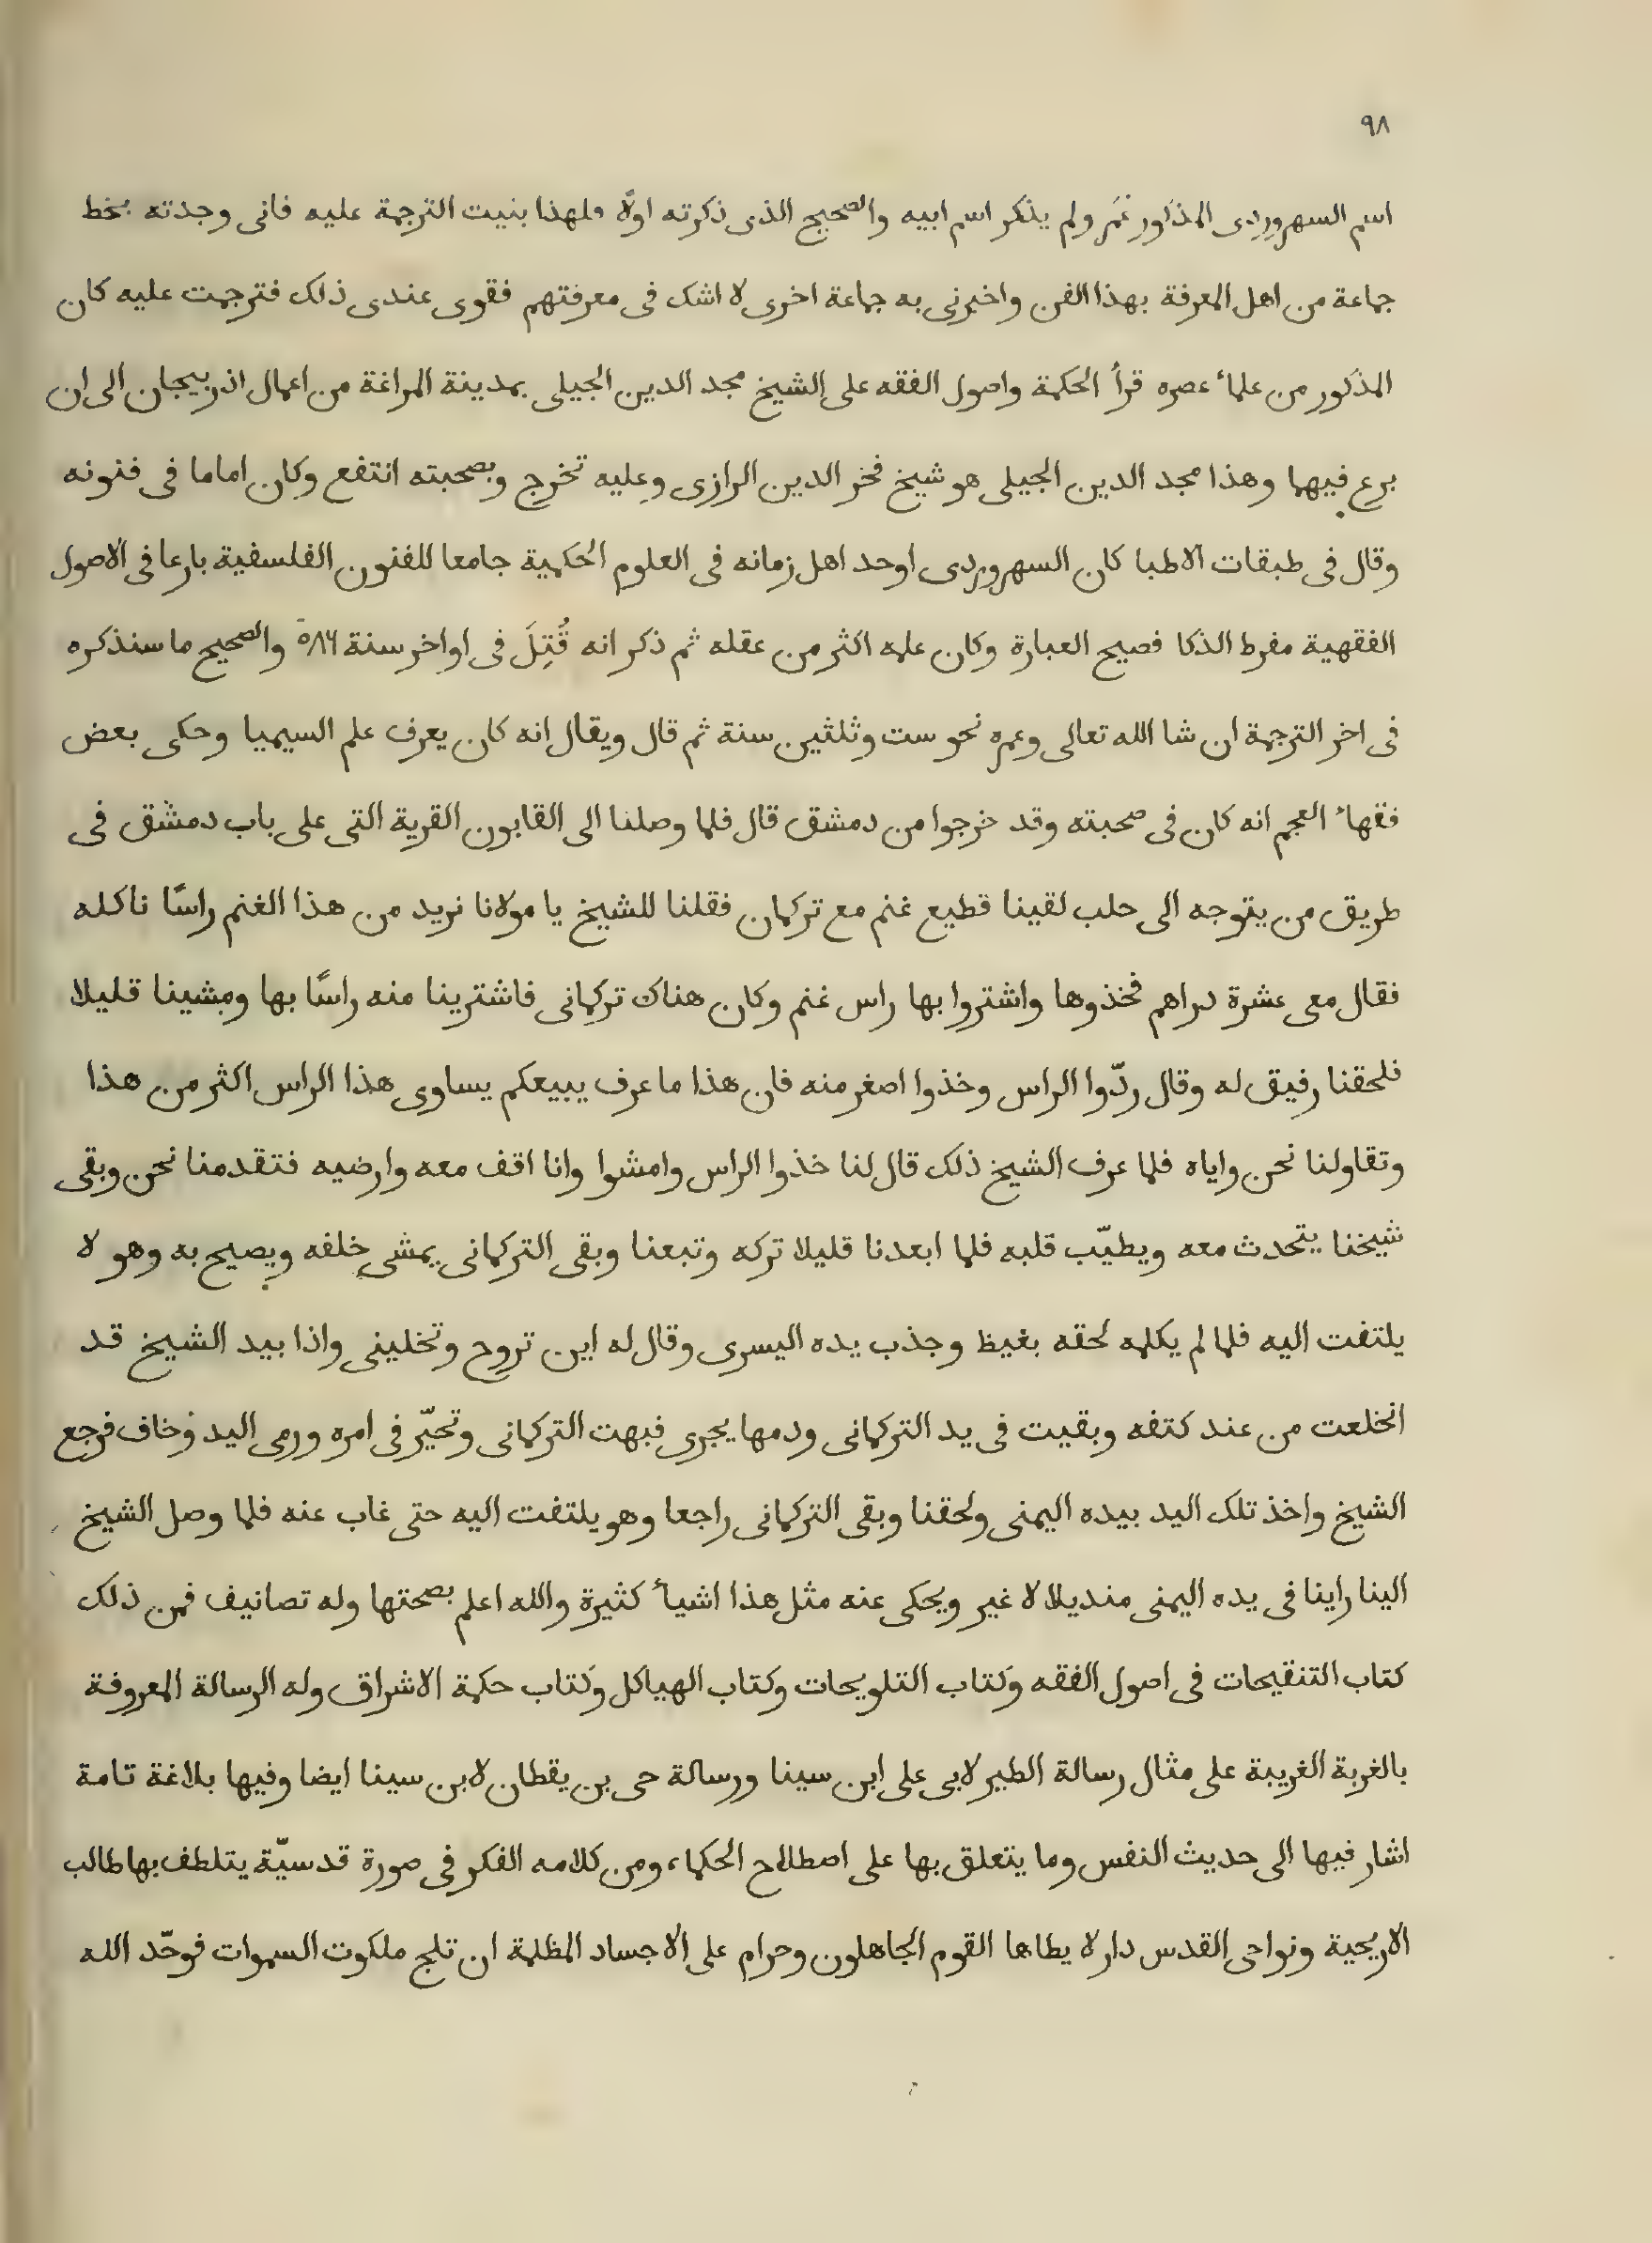 ٩٨
اسم السهروردى المذكور عُمَر ولم يذكر اسم ابيه والصحيح الذى ذكرته اولًا فلهذا بنيت الترجمة عليه فانى وجدته بخط
جماعة من اهل المعرفة بهذا الفن واخبرنى به جماعة اخرى لا اشك فى معرفتهم فقوى عندى ذلك فترجمت عليه كان
المذكور من علماء عصره قرأ الحكمة واصول الفقه على الشيخ مجد الدين الجيلى بمدينة المراغة من اعمال اذربيجان الى ان
برع فيهما وهذا مجد الدين الجيلى هو شيخ فخر الدين الرازى وعليه تخرج وبصحبته انتفع وكان اماما فى فنونه
وقال فى طبقات الاطبا كان السهروردى اوحد اهل زمانه فى العلوم الحكمية جامعا للفنون الفلسفية بارعا فى الاصول
الفقهية مفرط الذكا فصيح العبارة وكان علمه اكثر من عقله ثم ذكر انه قُتِلَ فى اواخر سنة ٥٨٦ والصحيح ما سنذكره
فى اخر الترجمة ان شا الله تعالى وعمره نحو ست وثلثين سنة ثم قال ويقال انه كان يعرف علم السيميا وحكى بعض
فقهاء العجم انه كان فى صحبته وقد خرجوا من دمشق قال فلما وصلنا الى القابون القرية التى على باب دمشق فى
طريق من يتوجه الى حلب لقينا قطيع غنم مع تركمان فقلنا للشيخ يا مولانا نريد من هذا الغنم راسًا ناكله
فقال معى عشرة دراهم فخذوها واشتروا بها راس غنم وكان هناك تركمانى فاشترينا منه راسًا بها ومشينا قليلا
فلحقنا رفيق له وقال ردّوا الراس وخذوا اصغر منه فان هذا ما عرف يبيعكم يساوى هذا الراس اكثر من هذا
وتقاولنا نحن واياه فلما عرف الشيخ ذلك قال لنا خذوا الراس وامشوا وانا اقف معه وارضيه فتقدمنا نحن وبقى
شيخنا يتحدث معه ويطيّب قلبه فلما ابعدنا قليلا تركه وتبعنا وبقى التركمانى يمشى خلفه ويصيح به وهو لا
يلتفت اليه فلما لم يكلمه لحقه بغيظ وجذب يده اليسرى وقال له اين تروح وتخلينى واذا بيد الشيخ قد
انخلعت من عند كتفه وبقيت فى يد التركمانى ودمها يجرى فبهت التركمانى وتحيّر فى امره ورمى اليد وخاف فرجع
الشيخ واخذ تلك اليد بيده اليمنى ولحقنا وبقى التركمانى راجعا وهو يلتفت اليه حتى غاب عنه فلما وصل الشيخ
الينا راينا فى يده اليمنى منديلا لا غير ويحكى عنه مثل هذا اشياء كثيرة والله اعلم بصحتها وله تصانيف فمن ذلك
كتاب التنقيحات فى اصول الفقه وكتاب التلويحات وكتاب الهياكل وكتاب حكمة الاشراق وله الرسالة المعروفة
بالغربة الغريبة على مثال رسالة الطير لابى على ابن سينا ورسالة حى بن يقطان لابن سينا ايضا وفيها بلاغة تامة
اشار فيها الى حديث النفس وما يتعلق بها على اصطلاح الحكماء ومن كلامه الفكر فى صورة قدسيّة يتلطف بها طالب
الاريحية ونواحى القدس دار لا يطاها القوم الجاهلون وحرام على الاجساد المظلمة ان تلج ملكوت السموات فوحّد الله